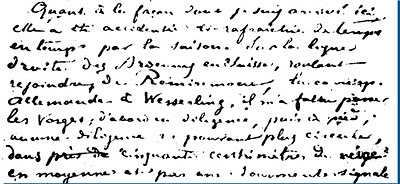 Quant à la façon dont je suis arrivé ici,
elle a été accidentée et rafraîchie de temps
en temps par la saison. Sur la ligne
droite des Ardennes en Suisse, voulant
rejoindre, de Remiremont, la corresp.
Allemande à Wesserling, il m'a fallu passer
les Vosges; d'abord en diligence, puis à pied,
aucune diligence ne pouvant plus circuler,
dans cinquante centimètres de neige
en moyenne et par une tourmente signalée